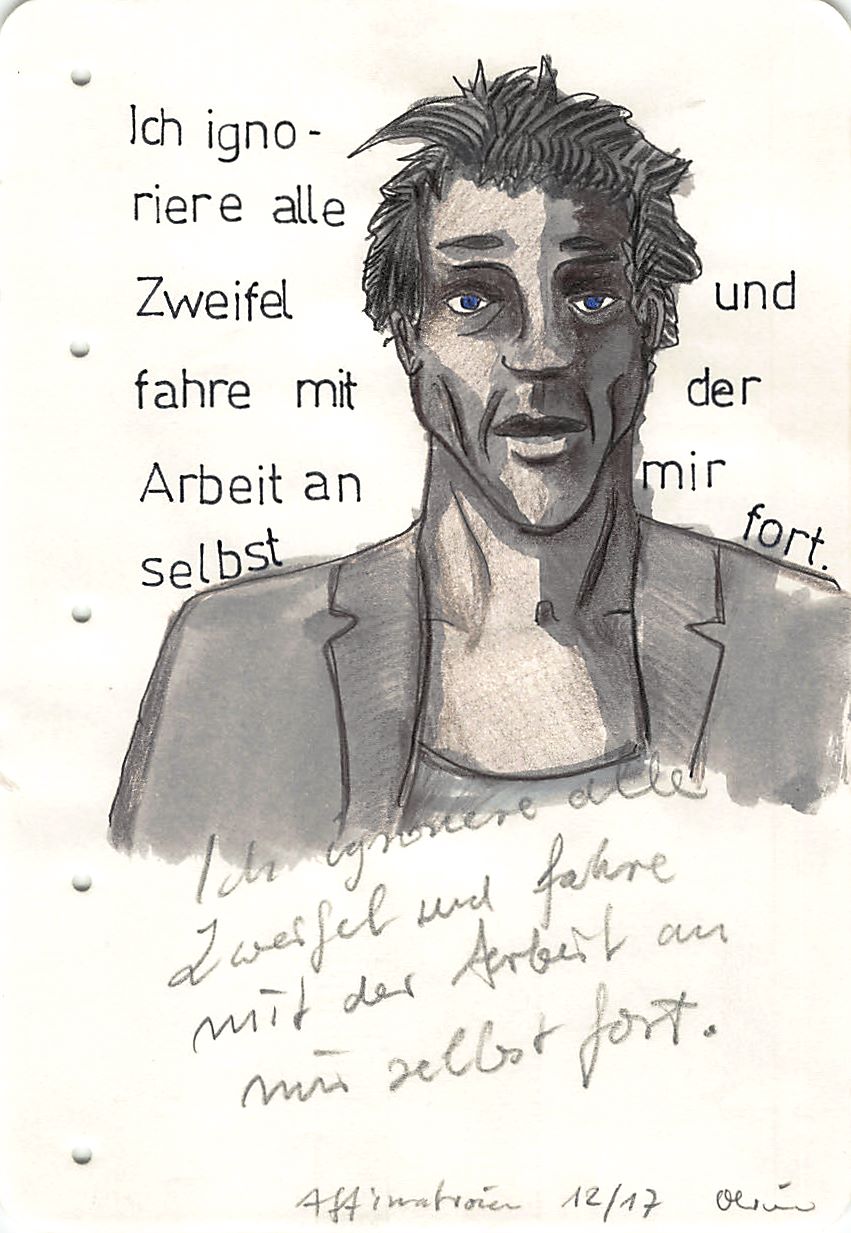 Ich igno-
riere alle
Zweifel und
fahre mit der
Arbeit an mir
selbst fort.
Ich ignoriere alle
Zweifel und fahre
mit der Arbeit an
mir selbst fort.
12/17